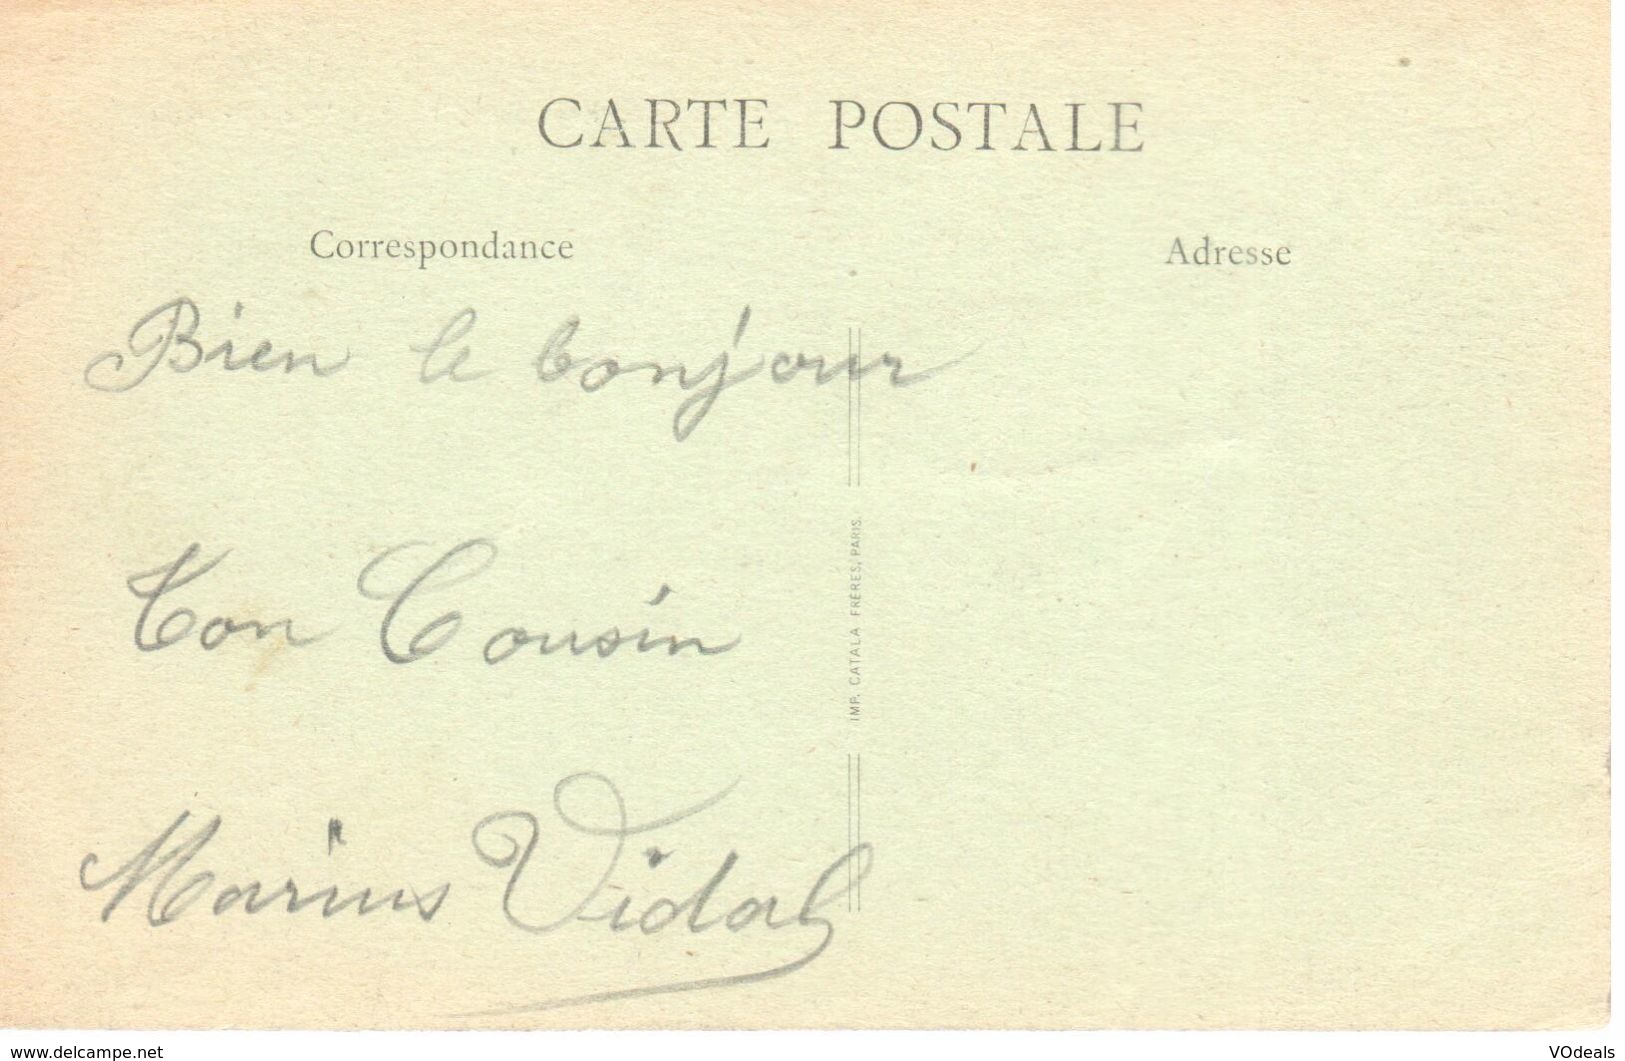 CARTE POSTALE
Correspondance
Adresse
Bien le bonjour
Ton Cousin
Marius Vidal
IMP. CATALA FRÈRES, PARIS.
www.delcampe.net
VOdeals